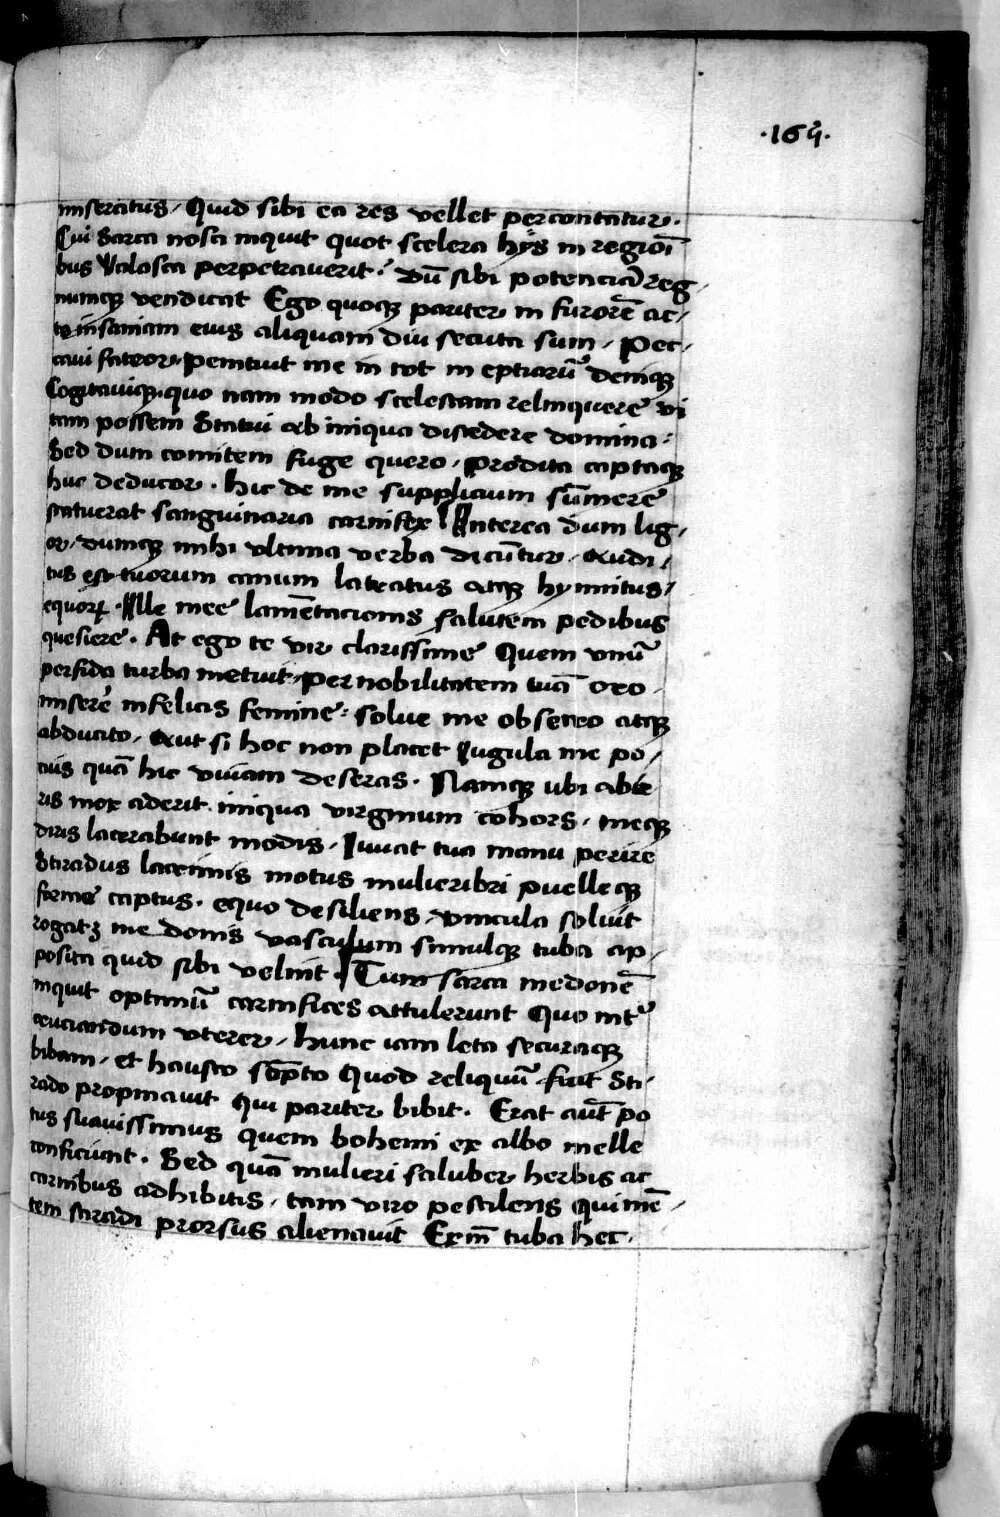 .165.
miseratus, Quid sibi ea res vellet percontatur.
Cui Sarca nosti inquit quot scelera hys in regioī
bus Valasca perpetraverit. dū sibi potenciā reg,
numq̢ vendicat Ego quoq̢ pariter in furorē ac,
ta insaniam eius aliquam diu secuta sum, Pec,
cavi fateor, Penituit me in tot in eptiarū deniq̢
Cogitaviq̢. quo nam modo scelestam relinquere vi
tam possem Statui ab iniqua discedere domina:
Sed dum comitem fuge quero, Prodita captaq̢
huc deducor. hic de me supplicium sūmere
statuerat sanguinaria carnifex Interea dum lig,
or, dumq̢ mihi ultima verba dicūtur, audi,
tus est tuorum canum latratus atq̢ hynnitus,
equorꝝ. Ille mee lamētacionis salutem pedibus
quesiere. At ego te vir clarissime Quem vnū
perfida turba metuit, per nobilitatem tuā oro,
misere infelicis femine: solve me obsecro atq̢
abducito, Aut si hoc non placet Iugula me po,
cius quā hic vivam deseras. Namq̢ ubi abie
ris mox aderit. iniqua virginum cohors, meq̢
diris lacerabunt modis, Iuvat tua manu perire
Stiradus lacrimis motus mulieribri puelleq̢
forme captus. equo desiliens, vincula solvit
rogatꝫ me donis vasculum simulq̢ tuba ap,
posita quid sibi velint. Tum sarca medonē
inquit optimū carnifices attulerunt Quo int̉
cruciandum vterer, hunc iam leta securaq̢
bibam, et hausto sōpto Quod reliquū fuit Sti,
rado propinavit Qui pariter bibit. Erat aūt po
tus suavissimus quem bohemi ex albo melle
conficiunt. Sed quā mulieri saluber herbis ac
carnibus adhibitis, tam viro pestilens Qui mē,
tem stiradi prorsus alienavit Exin̄ tuba hec.